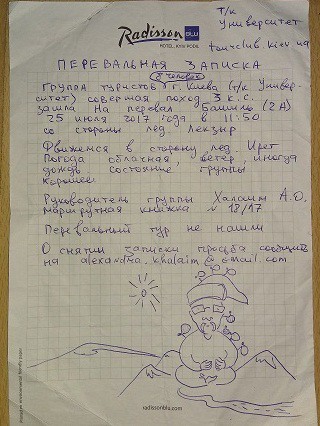 т/к
Университет
tourclub.kiev.ua
Radisson
BLU
HOTEL, KYIV PODIL
ПЕРЕВАЛЬНАЯ ЗАПИСКА
8 человек
Группа туристов г. Киева (т/к Универ-
ситет) совершая поход 3 к.с.
зашла на перевал Башиль (2А)
25 июля 2017 года в 11:50
со стороны лед. Лекзыр
Движемся в сторону лед.
Погода облачная, ветер, иногда
дождь состояние группы
хорошее.
Руководитель группы Халаим А.О.
маршрутная книжка № 18/17
Перевальный тур не нашли
О снятии записки просьба сообщить
на alexandra.khalaim@gmail.com
radissonblu.com